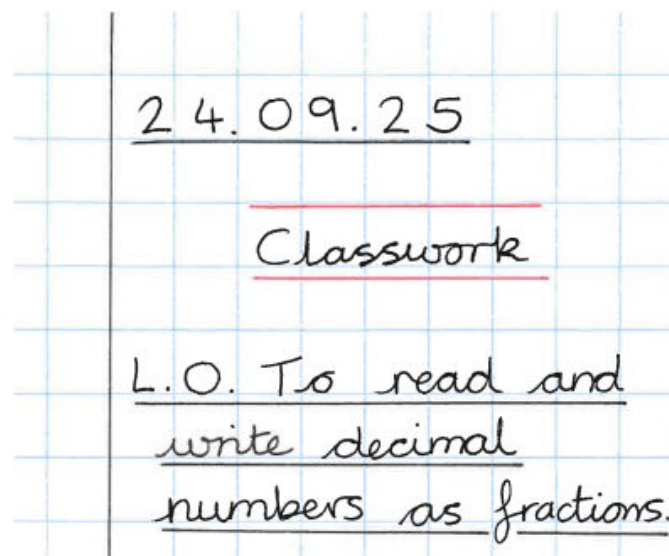 24.09.25
Classwork
L.O. To read and
write decimal
numbers as fractions.